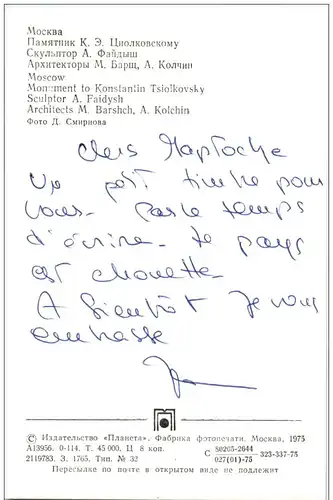 Москва
Памятник К. Э. Циолковскому
Скульптор А. Файдыш
Архитекторы М. Барщ, А. Колчин
Moscow
Monument to Konstantin Tsiolkovsky
Sculptor A. Faidysh
Architects M. Barshch, A. Kolchin
Фото Д. Смирнова
Chers
Un petit timbre pour
vous. Pas le temps
d'écrire. Le pays
est chouette
A bientôt Je vous
embrasse
© Издательство «Планета». Фабрика фотопечати. Москва, 1975
А13956. 0-114. Т. 45 000. Ц 8 коп. С 80205-2644 / 027(01)-75 323-337-75
2119783. З. 1765. Тип. № 32
Пересылке по почте в открытом виде не подлежит